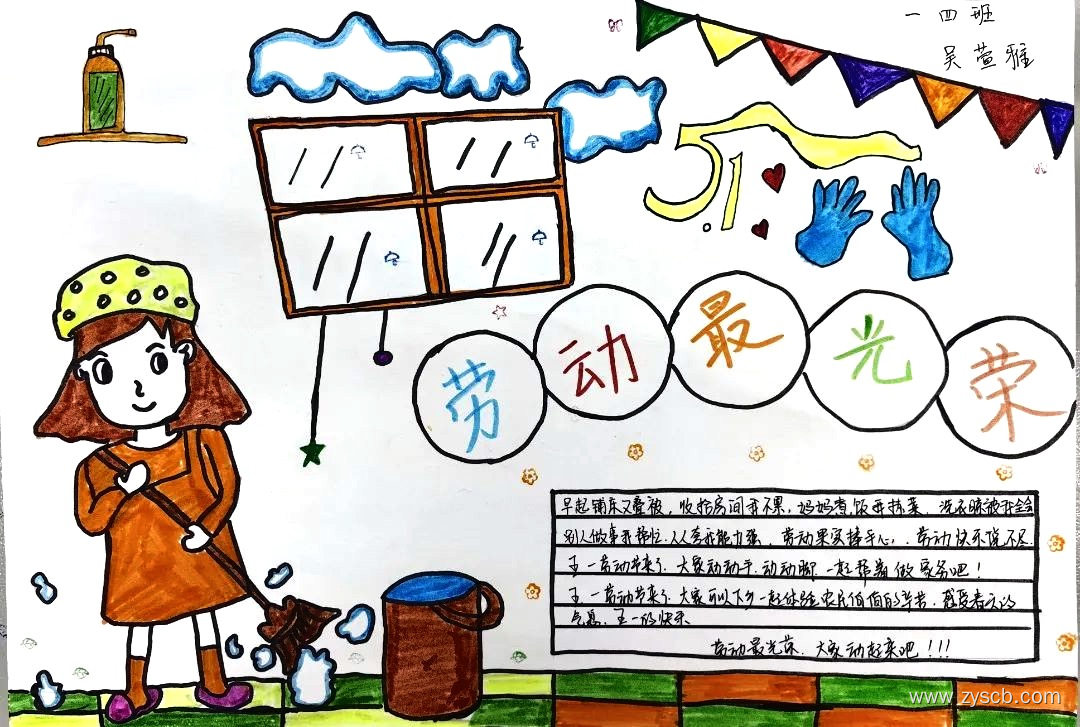 一四班
吴萱雅
5.1
劳动最光荣
早起铺床又叠被，收拾房间我不累，妈妈煮饭我择菜，洗衣晾被我全会
别人做事我帮忙，人人夸我能力强，劳动果实捧手心，劳动快乐说不尽.
五一劳动节来了，大家动动手，动动脚 一起帮着做家务吧！
五一劳动节来了，大家可以下乡一起体验农民伯伯的辛苦，感受春天的
气息，五一的快乐
劳动最光荣，大家动起来吧！！！
www.zyscb.com